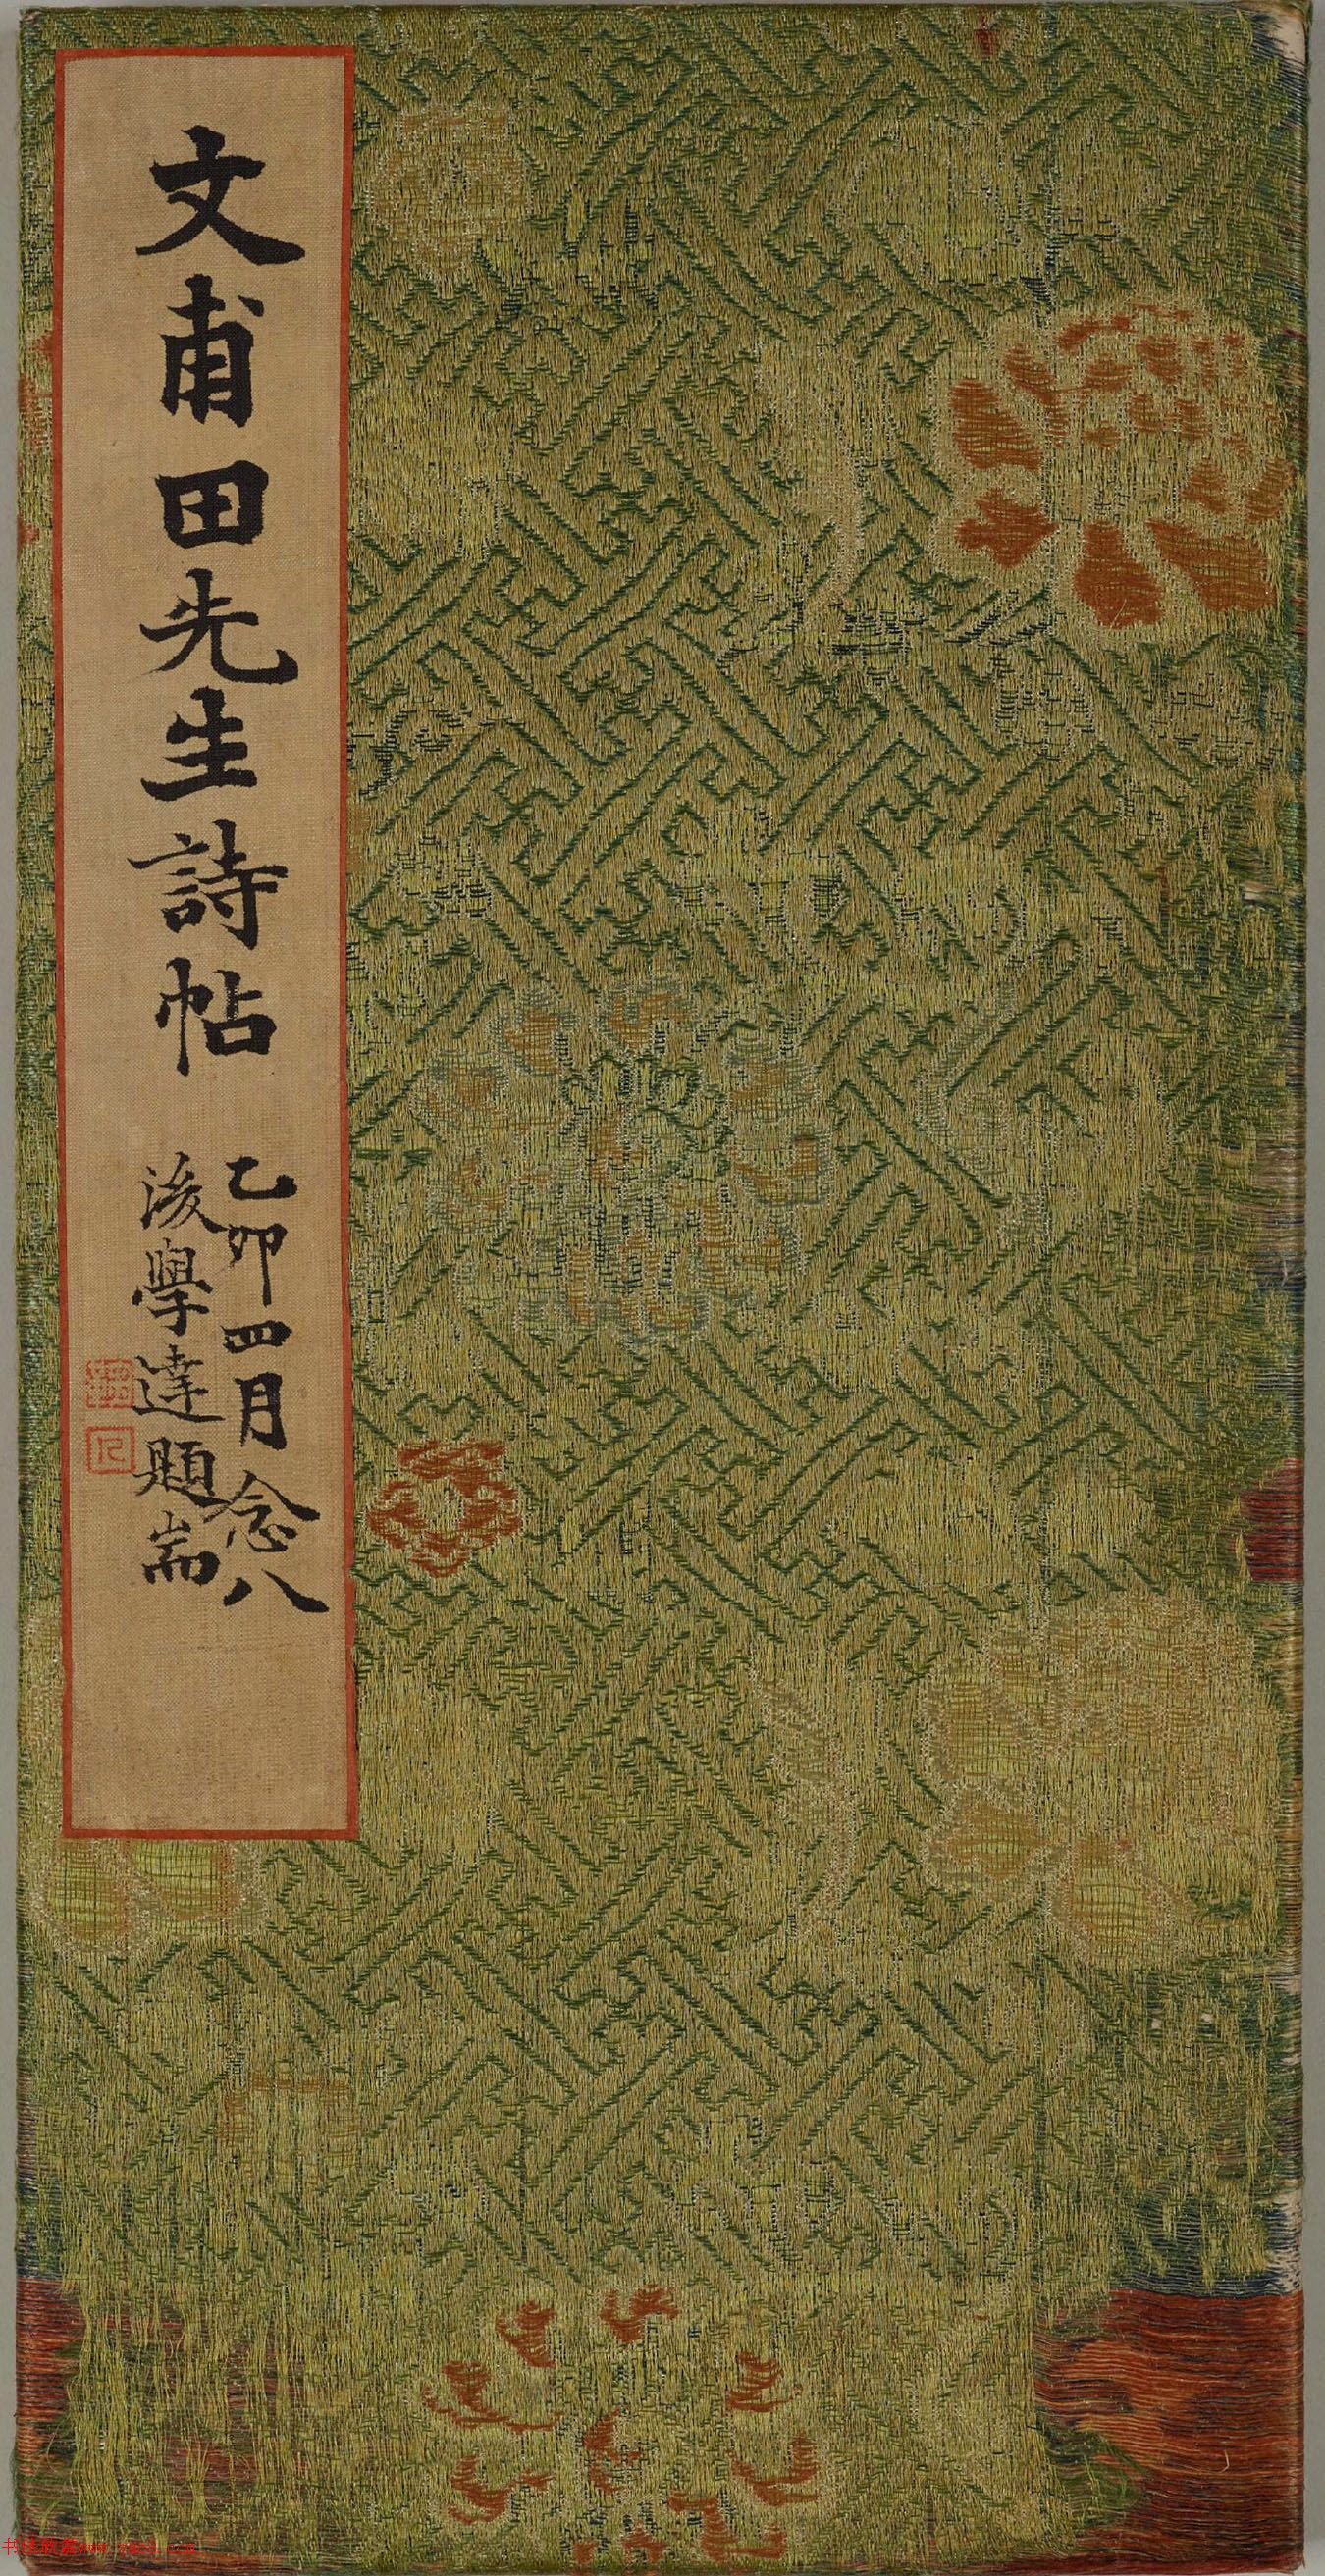 文甫田先生詩帖
乙卯四月念八
後學達題耑
书法欣赏www.yac8.com